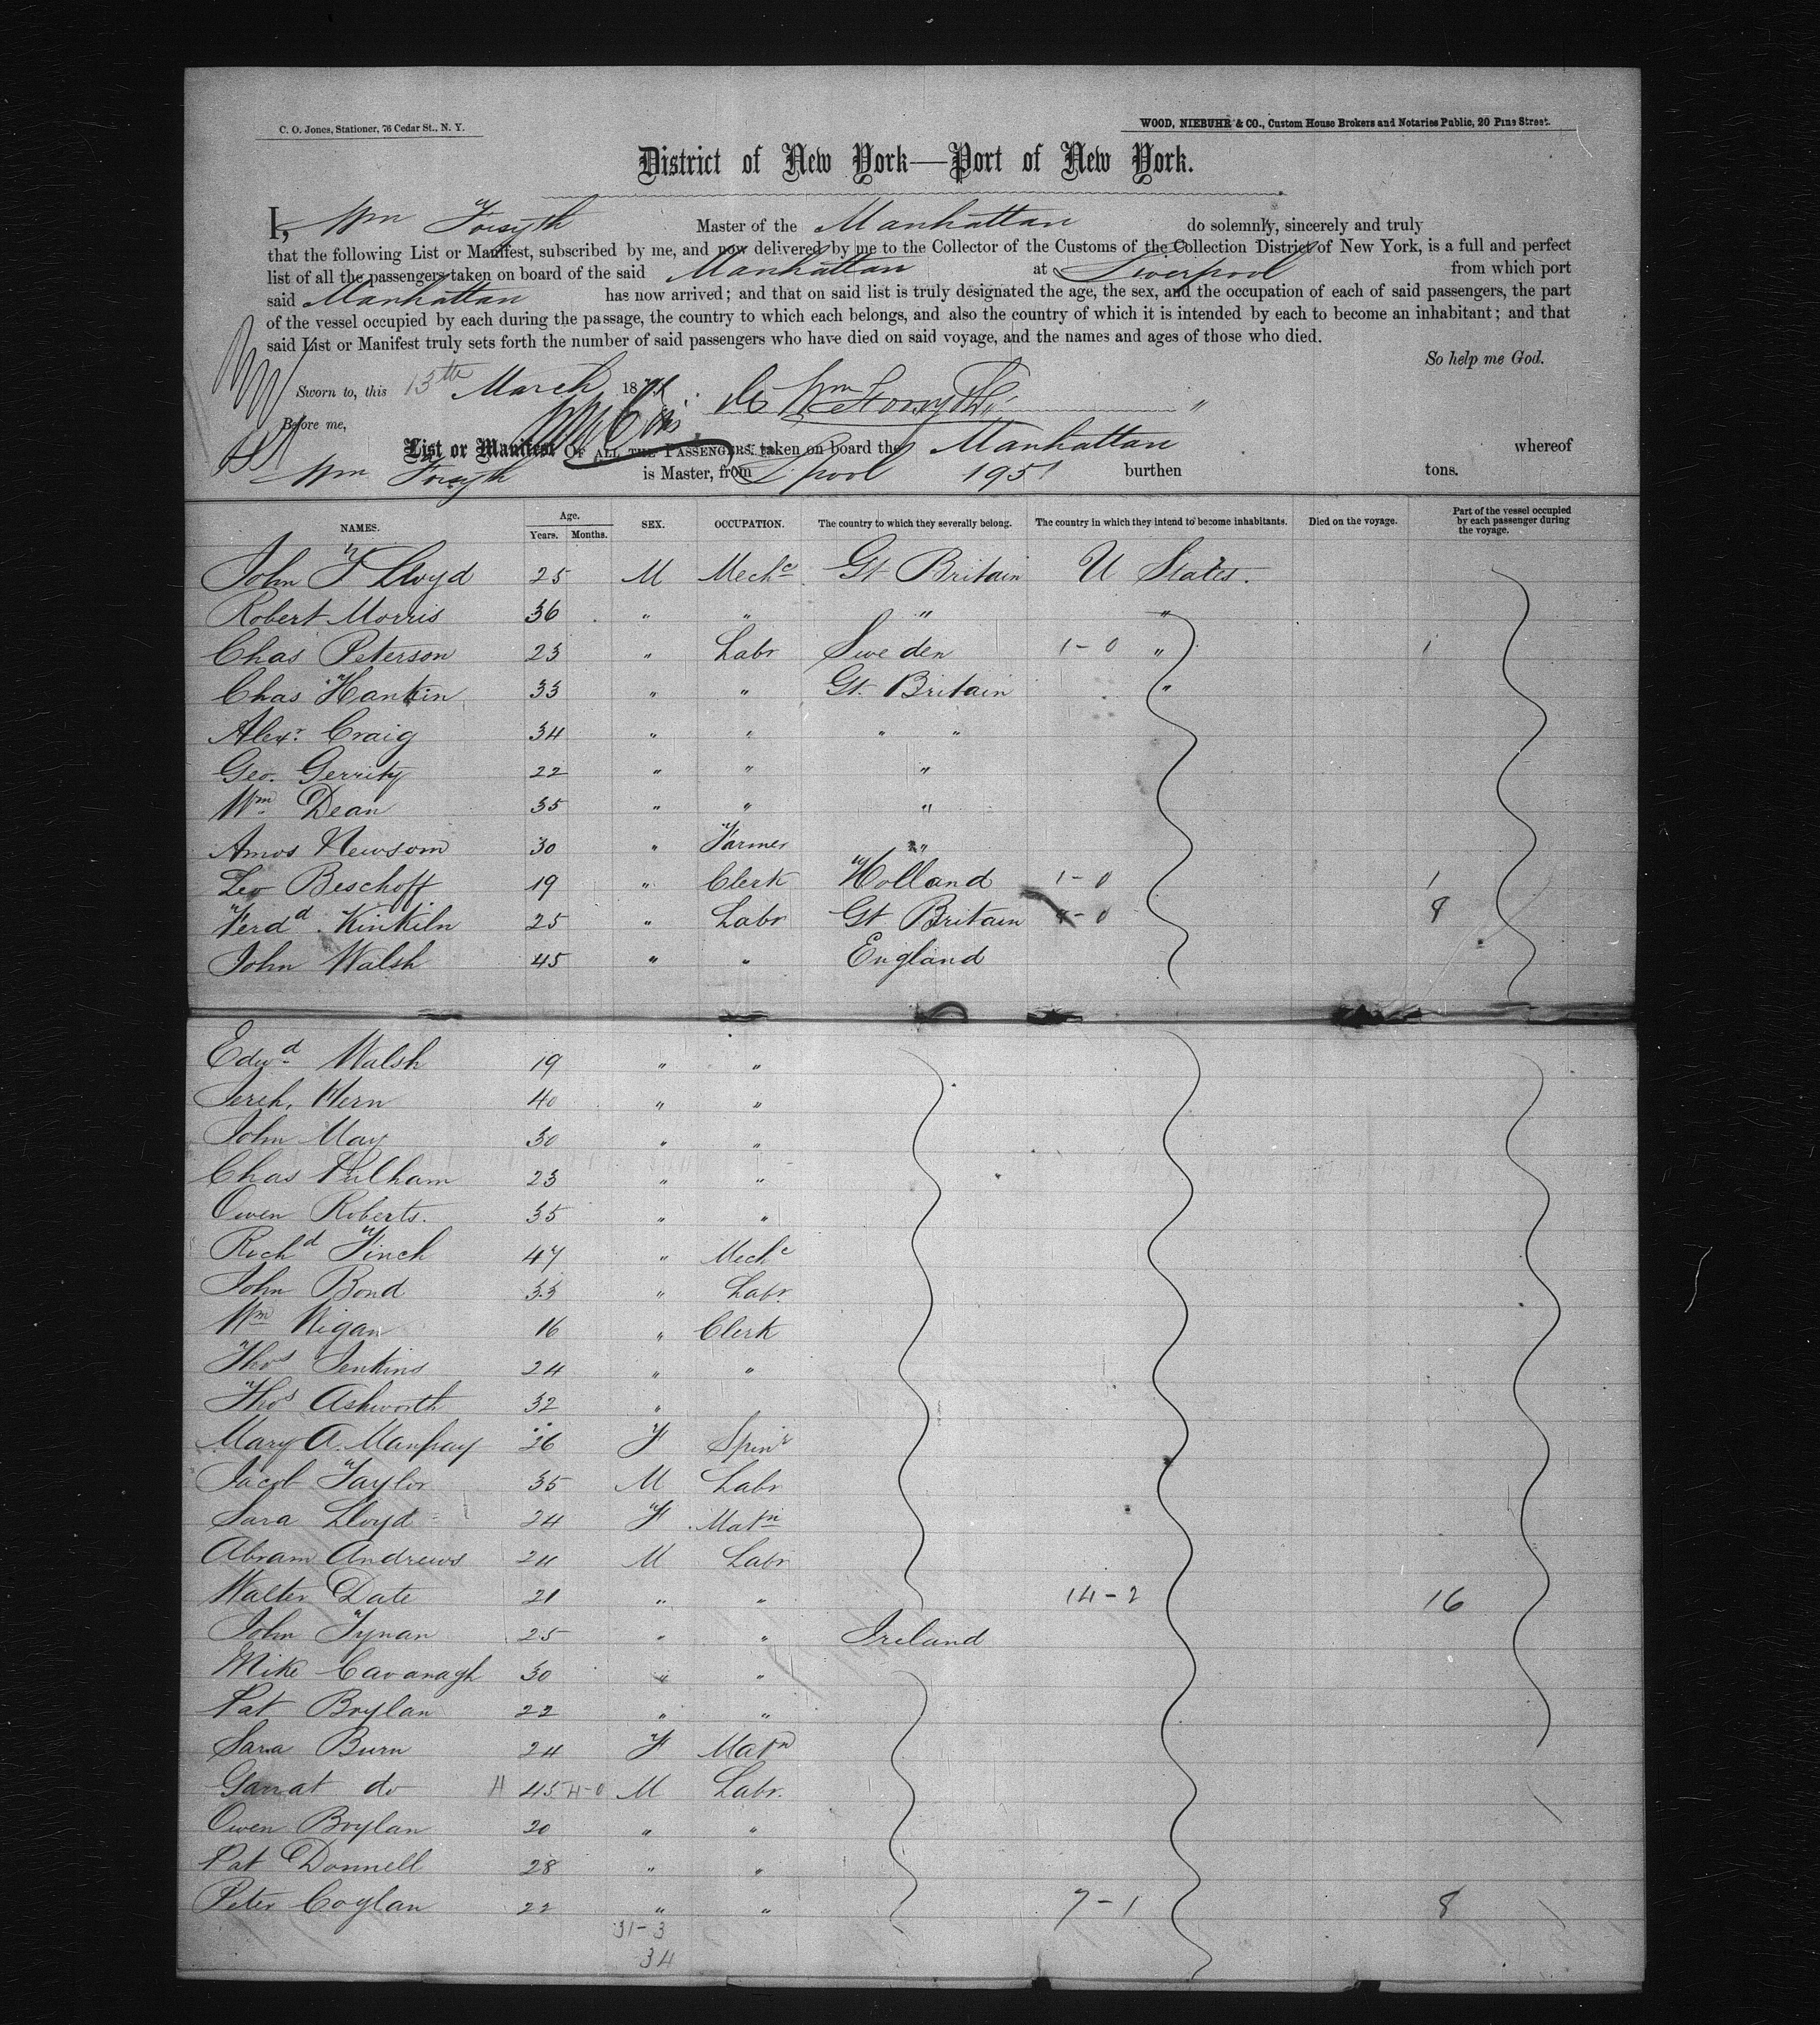 C. O. Jones, Stationer, 76 Cedar St., N. Y.
WOOD, NIEBUHR & CO., Custom House Brokers and Notaries Public, 20 Pine Street.
District of New York—Port of New York.
I, Wm Forsyth Master of the Manhattan do solemnly, sincerely and truly
that the following List or Manifest, subscribed by me, and now delivered by me to the Collector of the Customs of the Collection District of New York, is a full and perfect
list of all the passengers taken on board of the said Manhattan at Liverpool from which port
said Manhattan has now arrived; and that on said list is truly designated the age, the sex, and the occupation of each of said passengers, the part
of the vessel occupied by each during the passage, the country to which each belongs, and also the country of which it is intended by each to become an inhabitant; and that
said List or Manifest truly sets forth the number of said passengers who have died on said voyage, and the names and ages of those who died.
So help me God.
Sworn to, this 13th March 1871 Wm Forsyth
Before me,
List or Manifest OF ALL THE PASSENGERS taken on board the Manhattan whereof
Wm Forsyth is Master, from L'pool 1951 burthen tons.
NAMES. Age. Years. Months. SEX. OCCUPATION. The country to which they severally belong. The country in which they intend to become inhabitants. Died on the voyage. Part of the vessel occupied by each passenger during the voyage.
John F Lloyd 25 M Mechc Gt Britain U States.
Robert Morris 36 " " " "
Chas Peterson 23 " Labr Sweden 1-0 " 1
Chas Hankin 33 " " Gt. Britain "
Alexr. Craig 34 " " " "
Geo. Gerrity 22 " " "
Wm. Dean 35 " " "
Amos Newsom 30 " Farmer "
Leo Beschoff 19 " Clerk Holland 1-0 1
Ferdd. Kinkiln 25 " Labr Gt Britain 8-0 8
John Walsh 45 " " England
Edwd Walsh 19 " "
Jerih. Hern 40 " "
John May 30 " "
Chas Pulham 23 " "
Owen Roberts. 35 " "
Richd Finch 47 " Mechc
John Bond 33 " Labr.
Wm Nigan 16 " Clerk
Thos Jenkins 24 " "
Thos Ashworth 32 "
Mary A. 26 F Spinr
Jacob Taylor 35 M Labr
Sara Lloyd 24 F Matn
Abram Andrews 24 M Labr
Walter Date 21 " " 14-2 16
John Tynan 25 " " Ireland
Mike Cavanagh 30 " "
Pat Boylan 22 " "
Sara Burn 24 F Matn
Garrat do H 45 H-0 M Labr.
Owen Boylan 20 " "
Pat Donnell 28 " "
Peter Coylan 22 " " 7-1 8
31-3
34